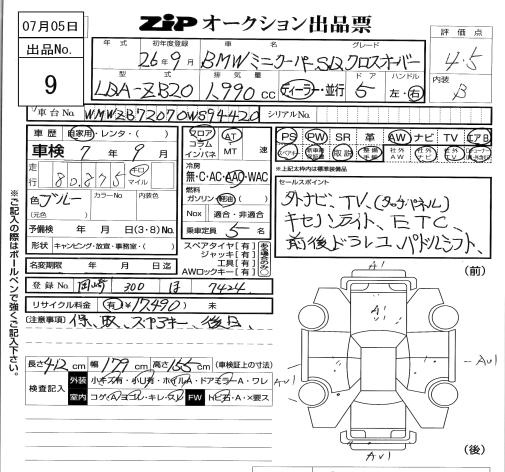 07月05日
ZIP オークション出品票
出品No.
9
年式 初年度登録 車名 グレード
26年9月 BMWミニクーパーSD クロスオーバー
評価点
4.5
内装
B
型式 排気量 ドア ハンドル
LDA-ZB20 1,990 cc ディーラー・並行 5 左・右
車台No. WMWZB72070WS94420 シリアルNo.
車歴 自家用・レンタ・( )
車検 7年 9月
走行 80,875 キロ マイル
色 ブルー カラーNo 内装色
(元色)
予備検 年 月 日(3・8)No.
形状 キャンピング・放宣・事務室・( )
名変期限 年 月 日迄
フロア コラム インパネ AT MT 速
冷房
無・C・AC・AAC・WAC
燃料
ガソリン 軽油 ( )
Nox 適合・非適合
乗車定員 5 名
スペアタイヤ[有]
ジャッキ[有]
工具[有]
AWロックキー[有]
PS PW SR 革 AW ナビ TV エアB
スペアキー 取説 整備手帳 社外AW 社外ナビ 社外TV
※上記太枠内は標準装備品
セールスポイント
外ナビ、TV、(タッチパネル)
キセノンライト、ETC、
前後ドラレコ、パドルシフト、
登録No. 岡崎 300 ほ 7424
リサイクル料金 有 ¥17,490 未
(注意事項) 保、取、スペアキー、後日、
長さ 412 cm 幅 179 cm 高さ 155 cm (車検証上の寸法)
検査記入 外装 小キズ有・小U有・ホイルA・ドアミラーA・ワレ
室内 コゲ・A・ヨゴレ・キレ・スレ FW トビ石・A・×要ス
(前)
A1
A1
AU1
AU1
AU1
(後)
※ご記入の際はボールペンで強くご記入下さい。